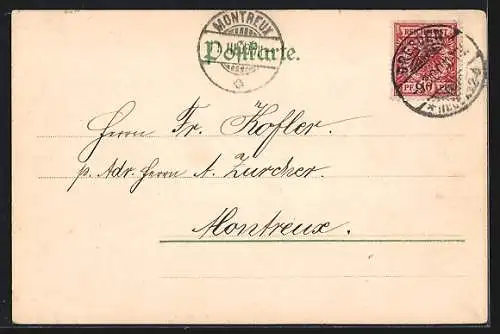 MONTREUX
Postkarte.
REICHSPOST
DRESDEN
Herrn Fr. Kofler.
p. Adr. Herrn A. Zurcher.
Montreux.